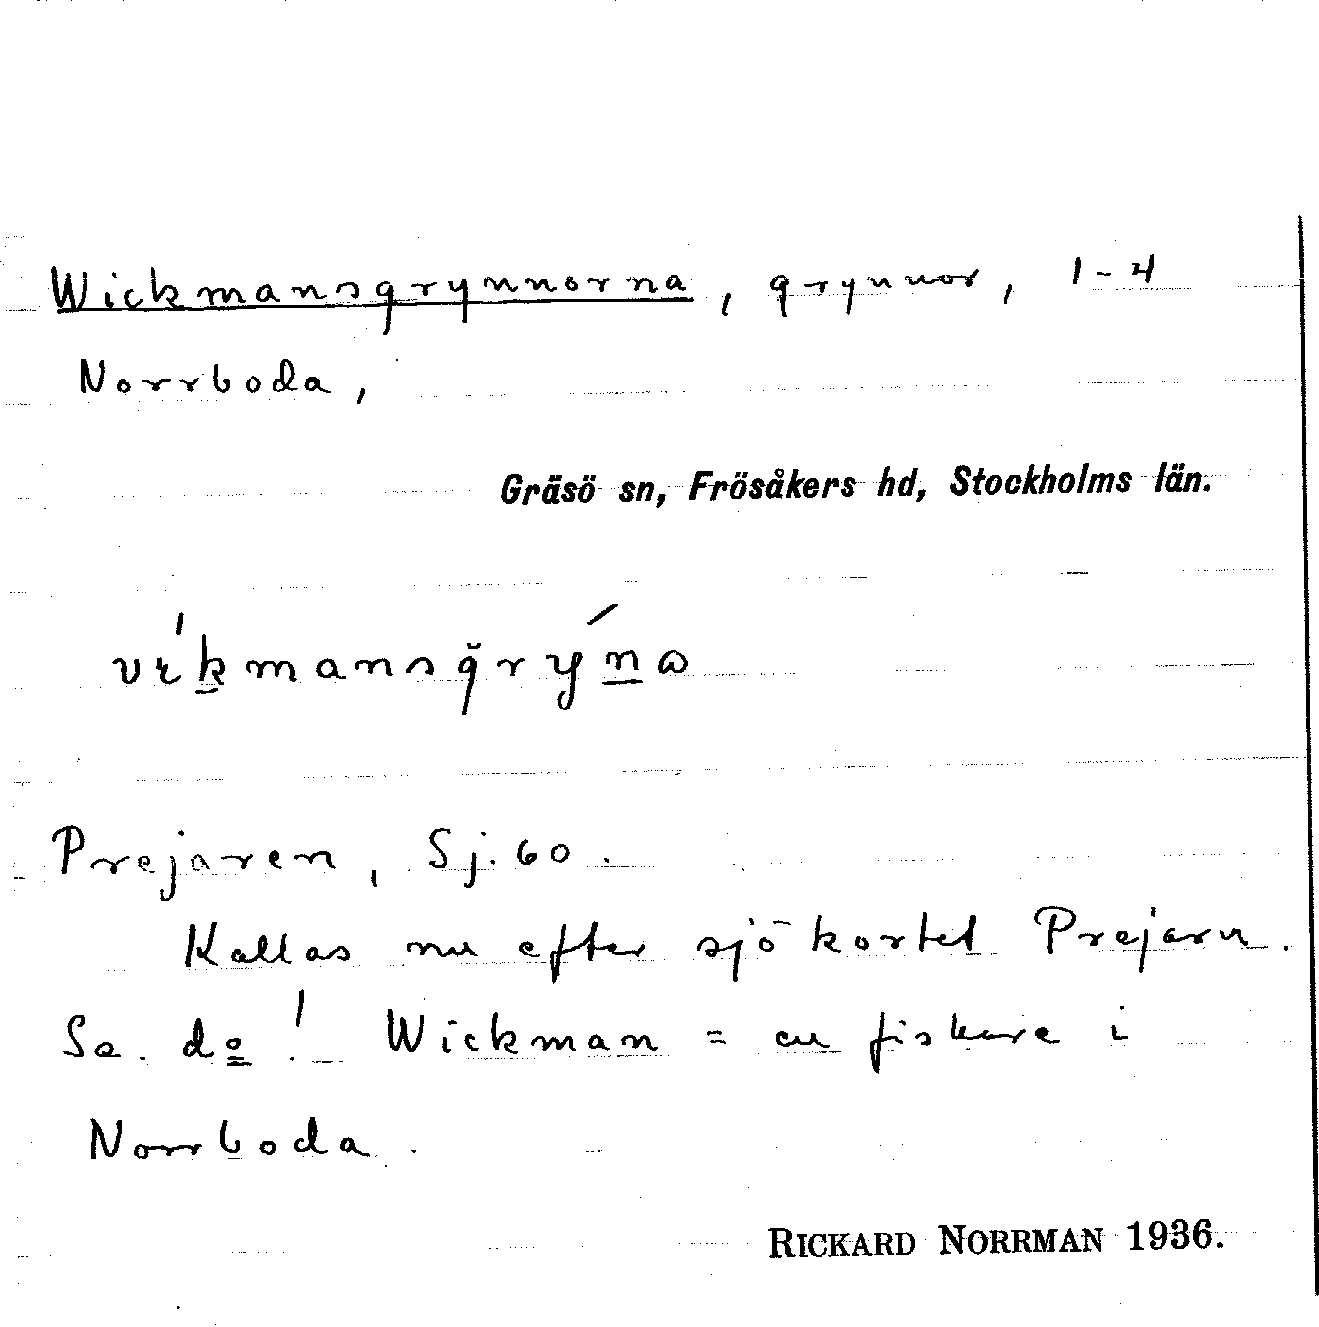 Wickmansgrynnorna, grynnor, 1-4
Norrboda,
Gräsö sn, Frösåkers hd, Stockholms län.
víkmansgrýna
Prejaren, Sj. 60.
Kallas nu efter sjökortet Prejarn.
Se. do! Wickman = en fiskare i
Norrboda.
RICKARD NORRMAN 1936.